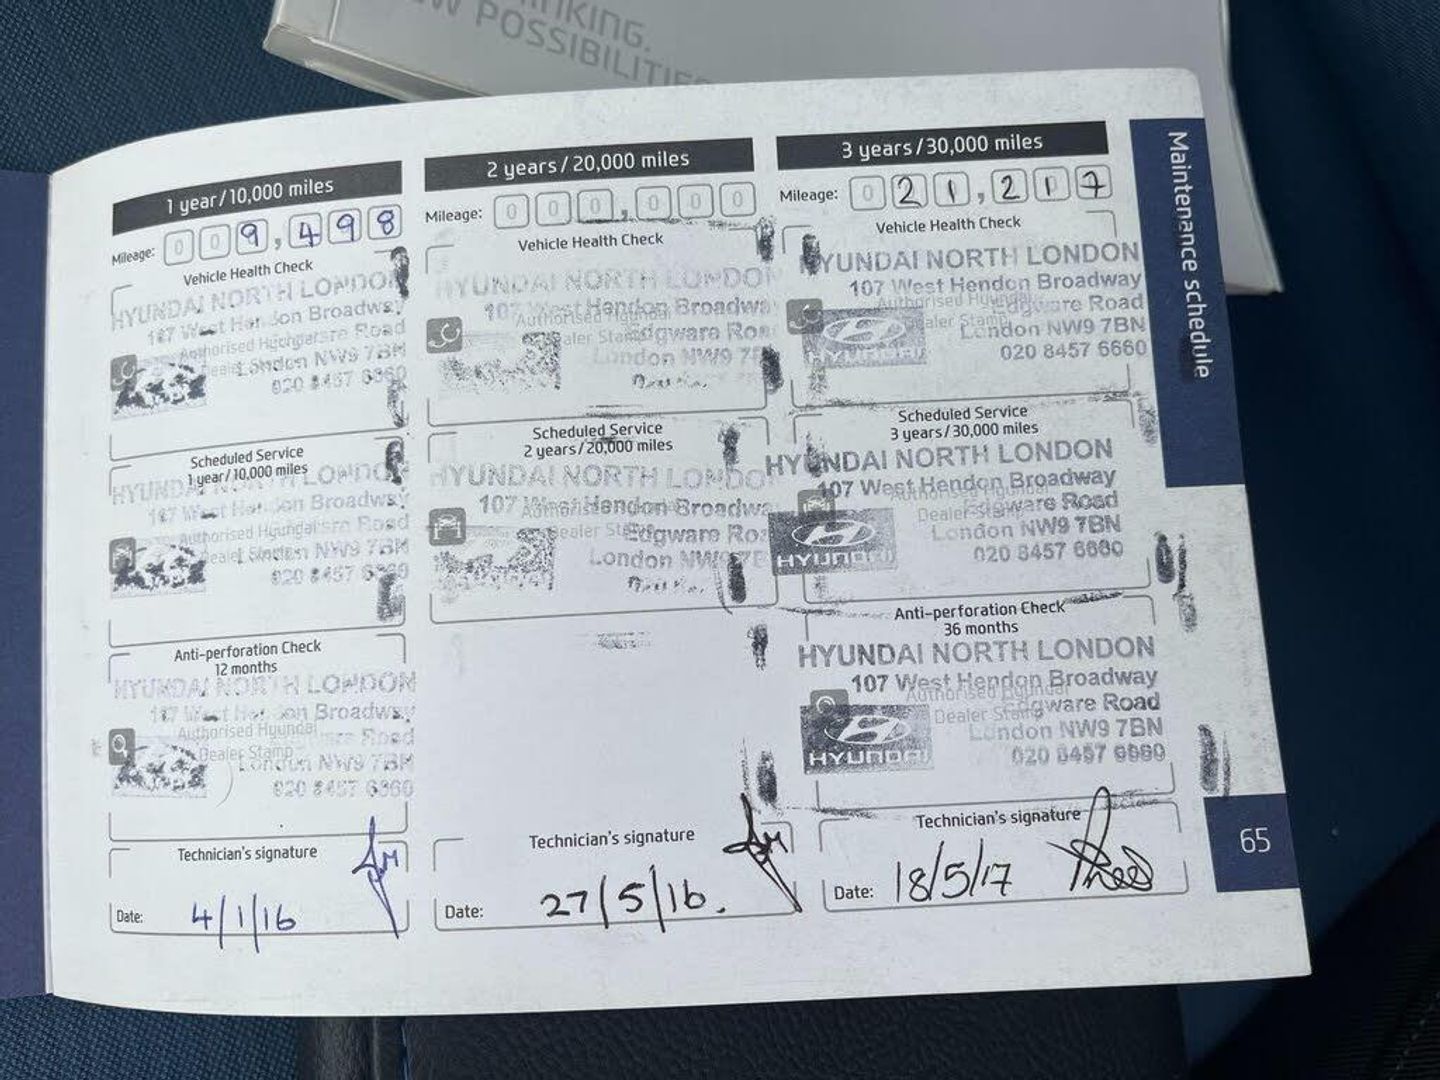 NKING.
W POSSIBILITIE
1 year/10,000 miles
Mileage: 009,498
Vehicle Health Check
HYUNDAI NORTH LONDON
107 West Hendon Broadway
Authorised Hyundai
Edgware Road
Dealer Stamp
London NW9 7BN
020 8457 6660
Scheduled Service
1 year/10,000 miles
HYUNDAI NORTH LONDON
107 West Hendon Broadway
Authorised Hyundai
Edgware Road
Dealer Stamp
London NW9 7BN
020 8457 6660
Anti-perforation Check
12 months
HYUNDAI NORTH LONDON
107 West Hendon Broadway
Authorised Hyundai
Edgware Road
Dealer Stamp
London NW9 7BN
020 8457 6660
Technician's signature
Date: 4/1/16
2 years/20,000 miles
Mileage: 000,000
Vehicle Health Check
HYUNDAI NORTH LONDON
107 West Hendon Broadwa
Authorised Hyundai
Dealer Stamp
Edgware Roa
London NW9 7B
Scheduled Service
2 years/20,000 miles
HYUNDAI NORTH LONDO
107 West Hendon Broadwa
Authorised Hyundai
Dealer Stamp
Edgware Roa
London NW9 7B
Technician's signature
Date: 27/5/16.
3 years/30,000 miles
Mileage: 021,217
Vehicle Health Check
HYUNDAI NORTH LONDON
107 West Hendon Broadway
Authorised Hyundai
Edgware Road
Dealer Stamp
London NW9 7BN
HYUNDAI
020 8457 6660
Scheduled Service
3 years/30,000 miles
HYUNDAI NORTH LONDON
107 West Hendon Broadway
Authorised Hyundai
Dealer Stamp
Edgware Road
London NW9 7BN
HYUNDAI
020 8457 6660
Anti-perforation Check
36 months
HYUNDAI NORTH LONDON
107 West Hendon Broadway
Authorised Hyundai
Edgware Road
Dealer Stamp
London NW9 7BN
HYUNDAI
020 8457 6660
Technician's signature
Date: 18/5/17
Maintenance schedule
65